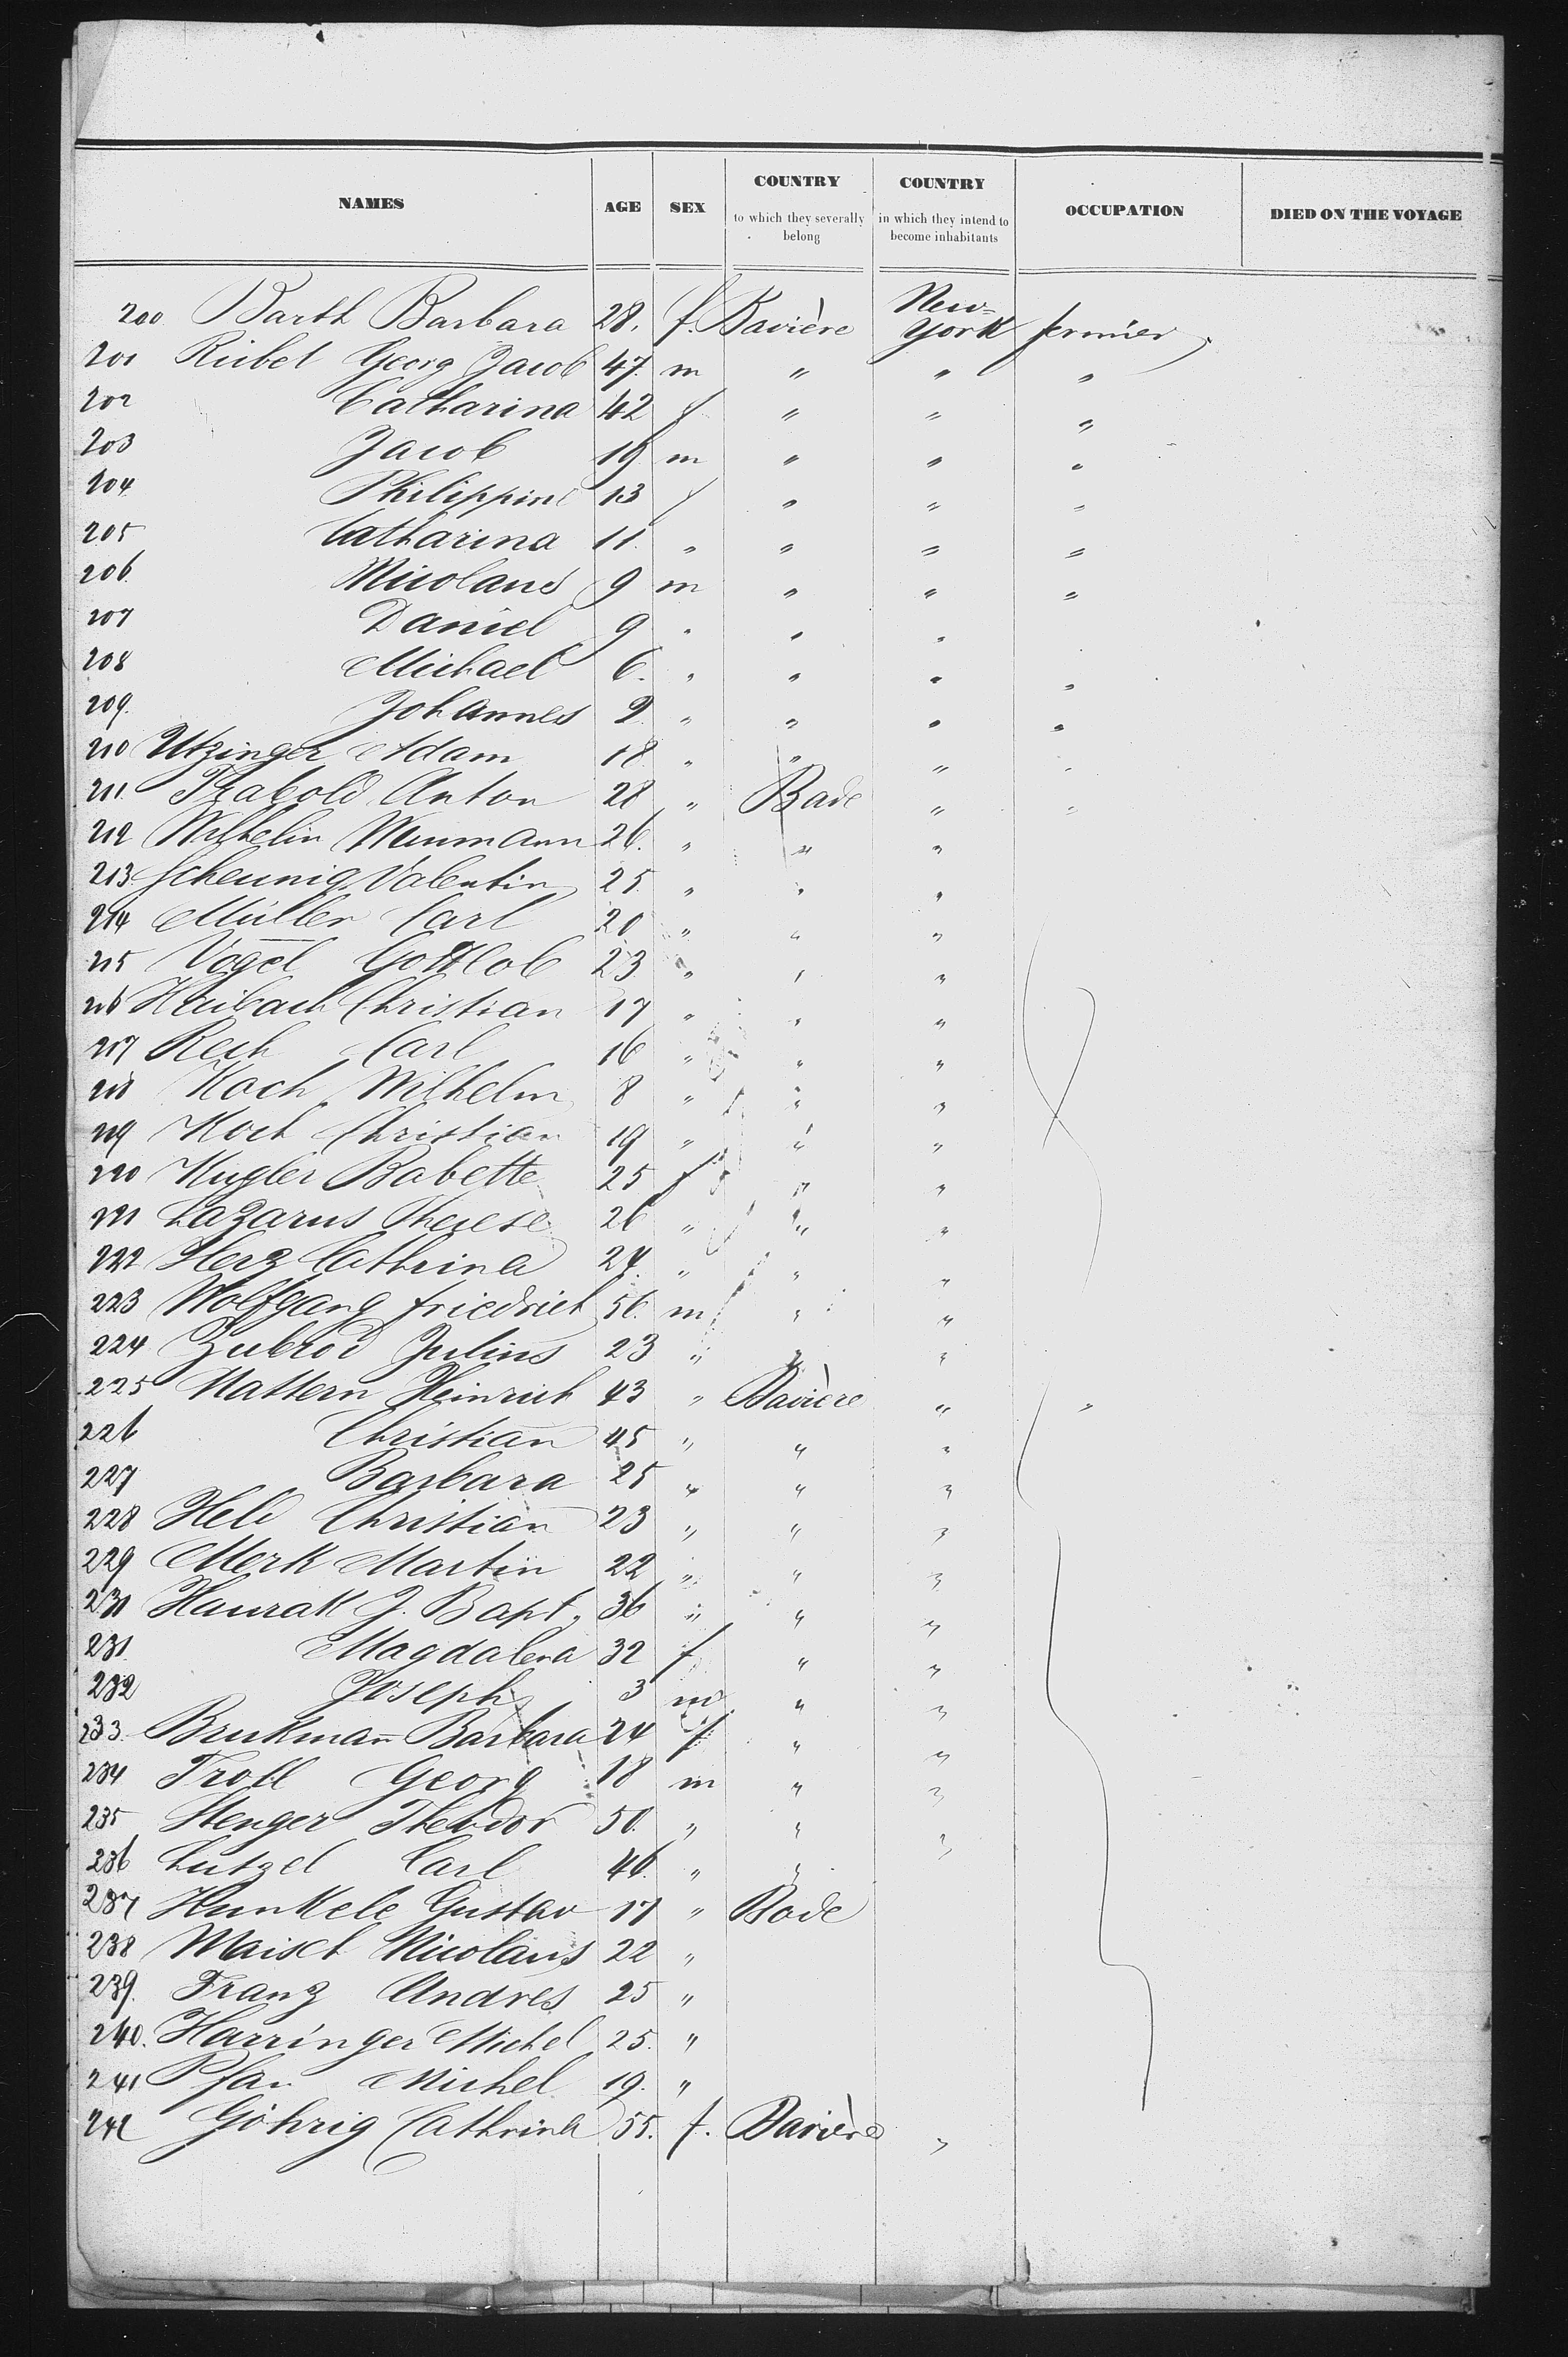 NAMES AGE SEX COUNTRY to which they severally belong COUNTRY in which they intend to become inhabitants OCCUPATION DIED ON THE VOYAGE
200 Barth Barbara 28. f. Bavière New-York fermier
201 Rübel Georg Jacob 47. m " " "
202 Catharina 42 f " " "
203 Jacob 19 m " " "
204 Philippine 13 f " " "
205 Catharina 11. " " " "
206. Nicolaus 9 m " " "
207 Daniel 9 " " "
208 Michael 6. " " " "
209. Johannes 2 " " " "
210 Utzinger Adam 18 " " " "
211. Trabold Anton 28 " Bade " "
212 Wilhelm 26. " " "
213. Scheunig Valentin 25 " " "
214 Müller Carl 20 " " "
215 Vogel Gottlob 23 " " "
216 Haibach Christian 17 " " "
217 Rech Carl 16 " " "
218 Koch Wilhelm 8 " " "
219 Koch Christian 19 " " "
220 Kugler Babette 25 f " "
221 Lazarus Therese 26 " " "
222 Herz Cathrina 24. " " "
223 Wolfgang friedrich 56. m " "
224 Zubrod Julius 23 " " "
225 Mattern Heinrich 43 " Bavière " "
226 Christian 45 " " "
227 Barbara 25 " " "
228 Held Christian 23 " " "
229 Merk Martin 22 " " "
230 J. Bapt. 36 " " "
231. Magdalena 32 f " "
232 Joseph 3 m " "
233. Brukman Barbara 24 f " "
234 Troll Georg 18 m " "
235 Stenger Theodor 50. " " "
236 Lutzel Carl 46. " "
237 Hunkele Gustav 17 " Bade
238 Maisch Nicolaus 22 "
239. Franz Andres 25 "
240. Harringer Michel 25. "
241 Pfau Michel 19. "
242 Göhrig Cathrina 55. f. Bavière "